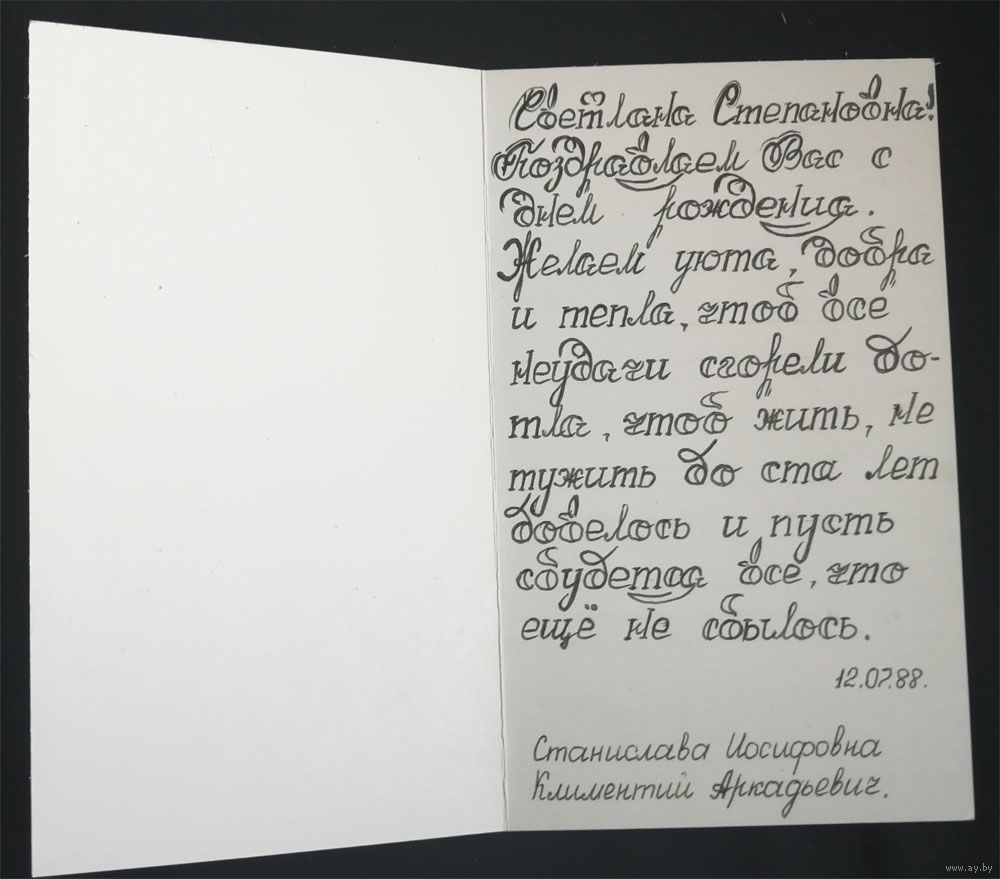 Светлана Степановна!
Поздравляем Вас с
днем рождения.
Желаем уюта, добра
и тепла, чтоб все
неудачи сгорели до-
тла, чтоб жить, не
тужить до ста лет
довелось и пусть
сбудется все, что
ещё не сбылось.
12.07.88.
Станислава Иосифовна
Климентий Аркадьевич.
www.ay.by